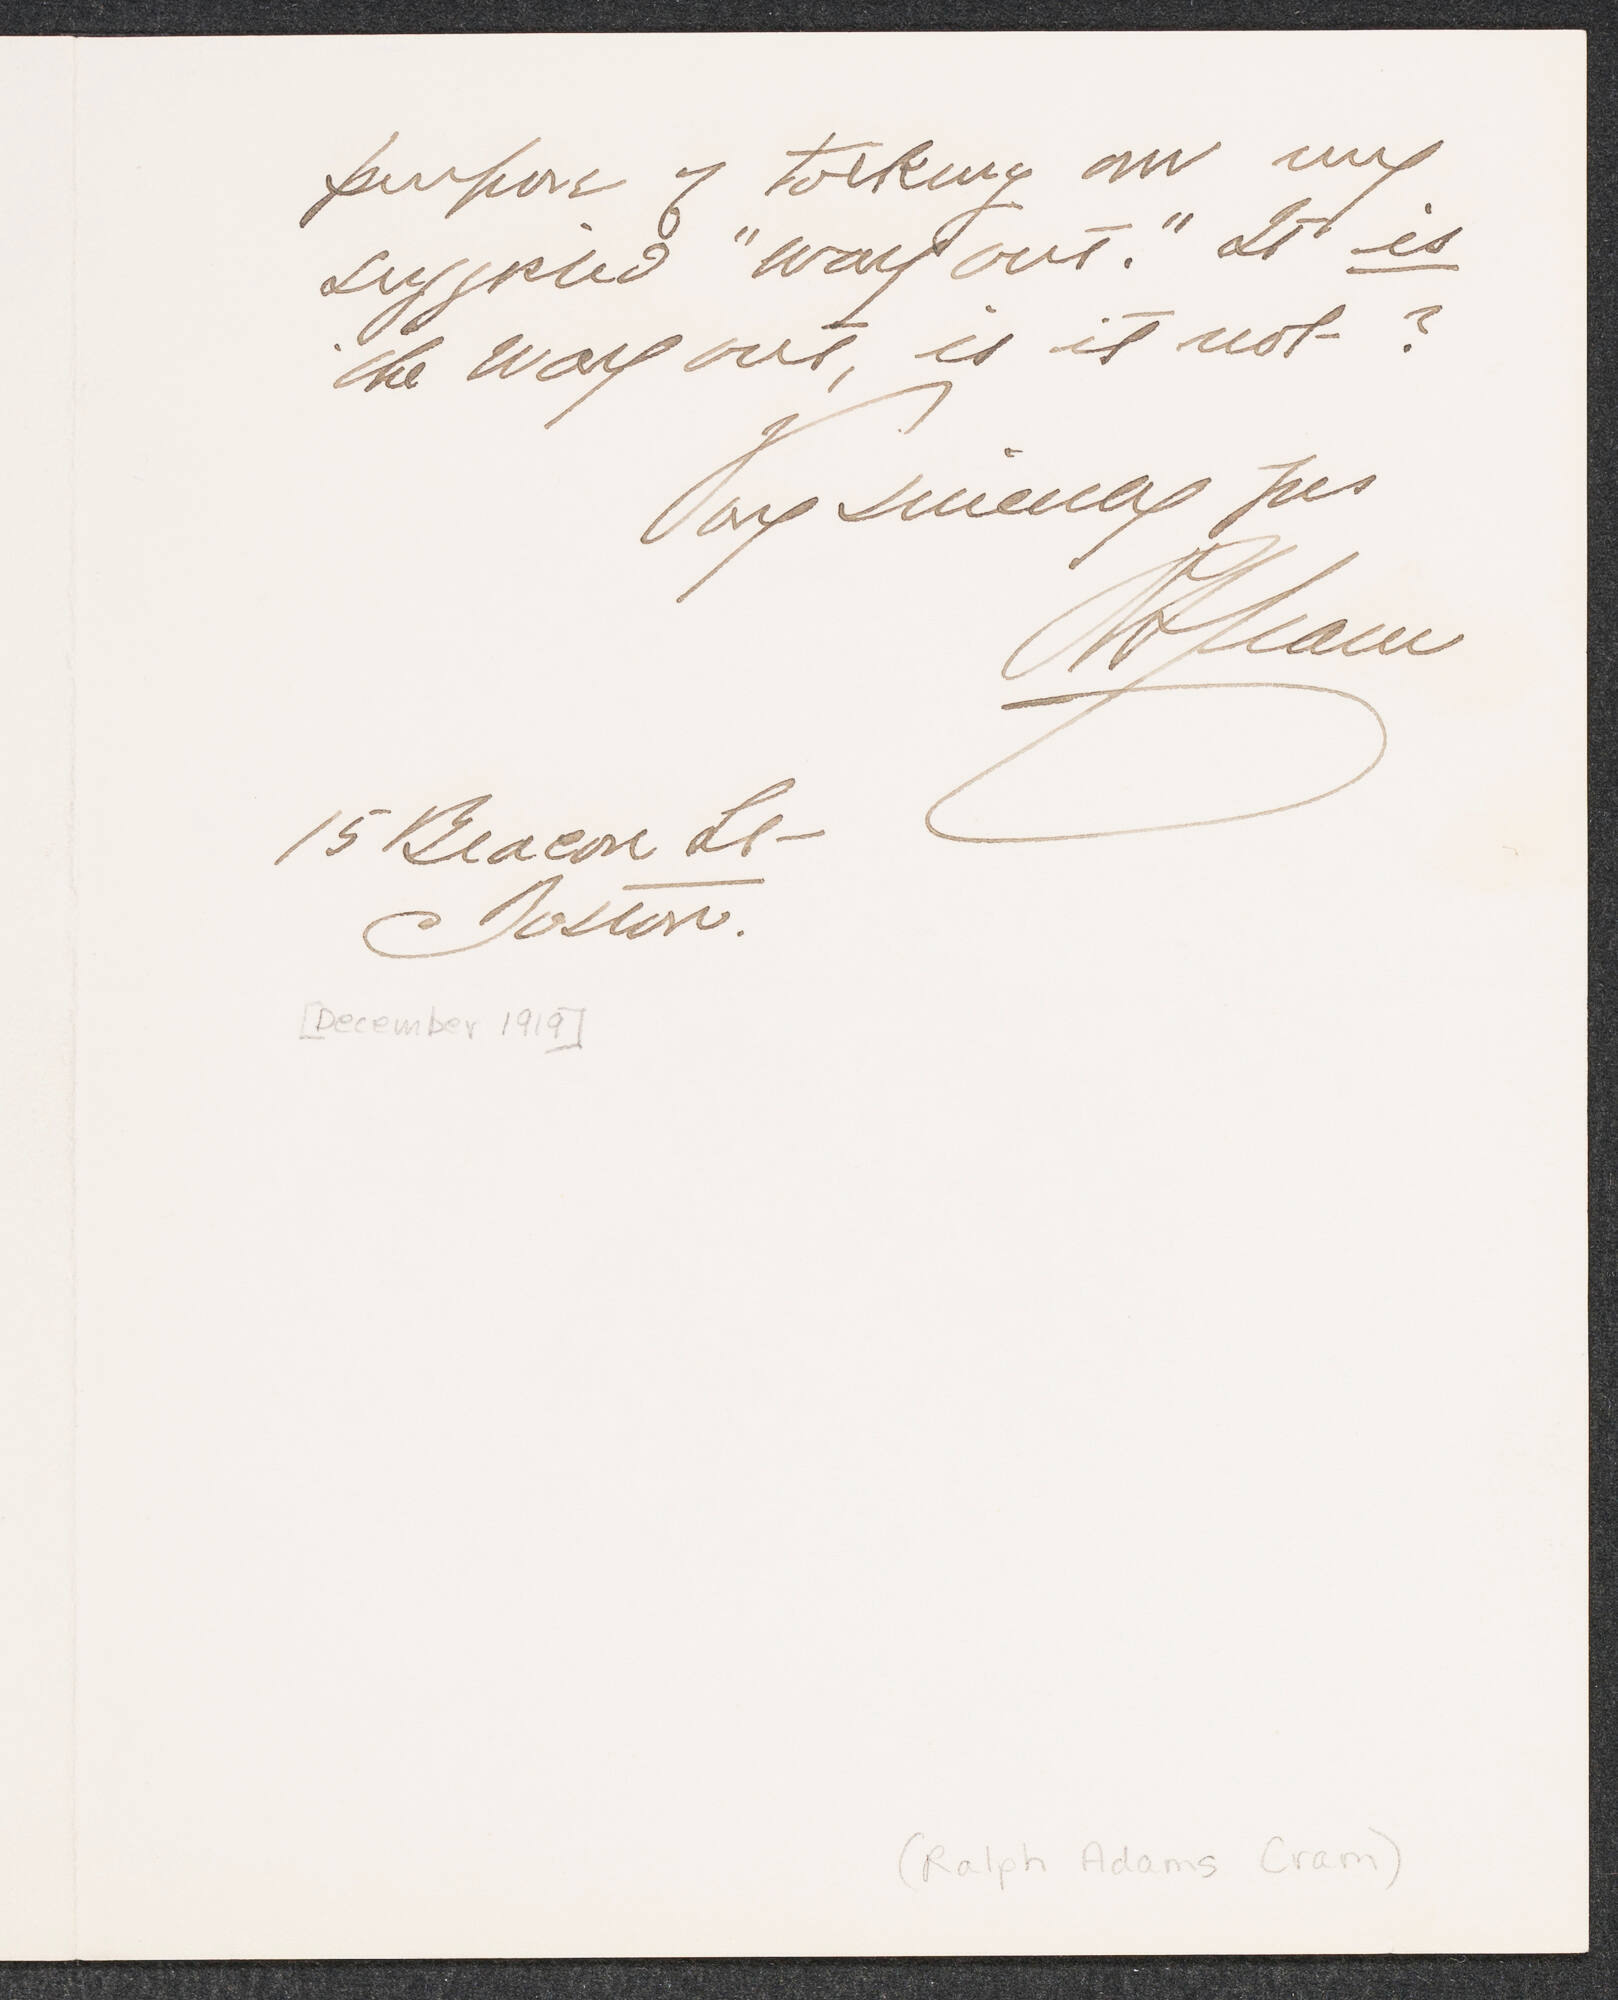 purpose of talking over my
suggested "way out." It is
the way out, is it not?
Very sincerely yrs
RACram
15 Beacon St-
Boston.
[December 1919]
(Ralph Adams Cram)